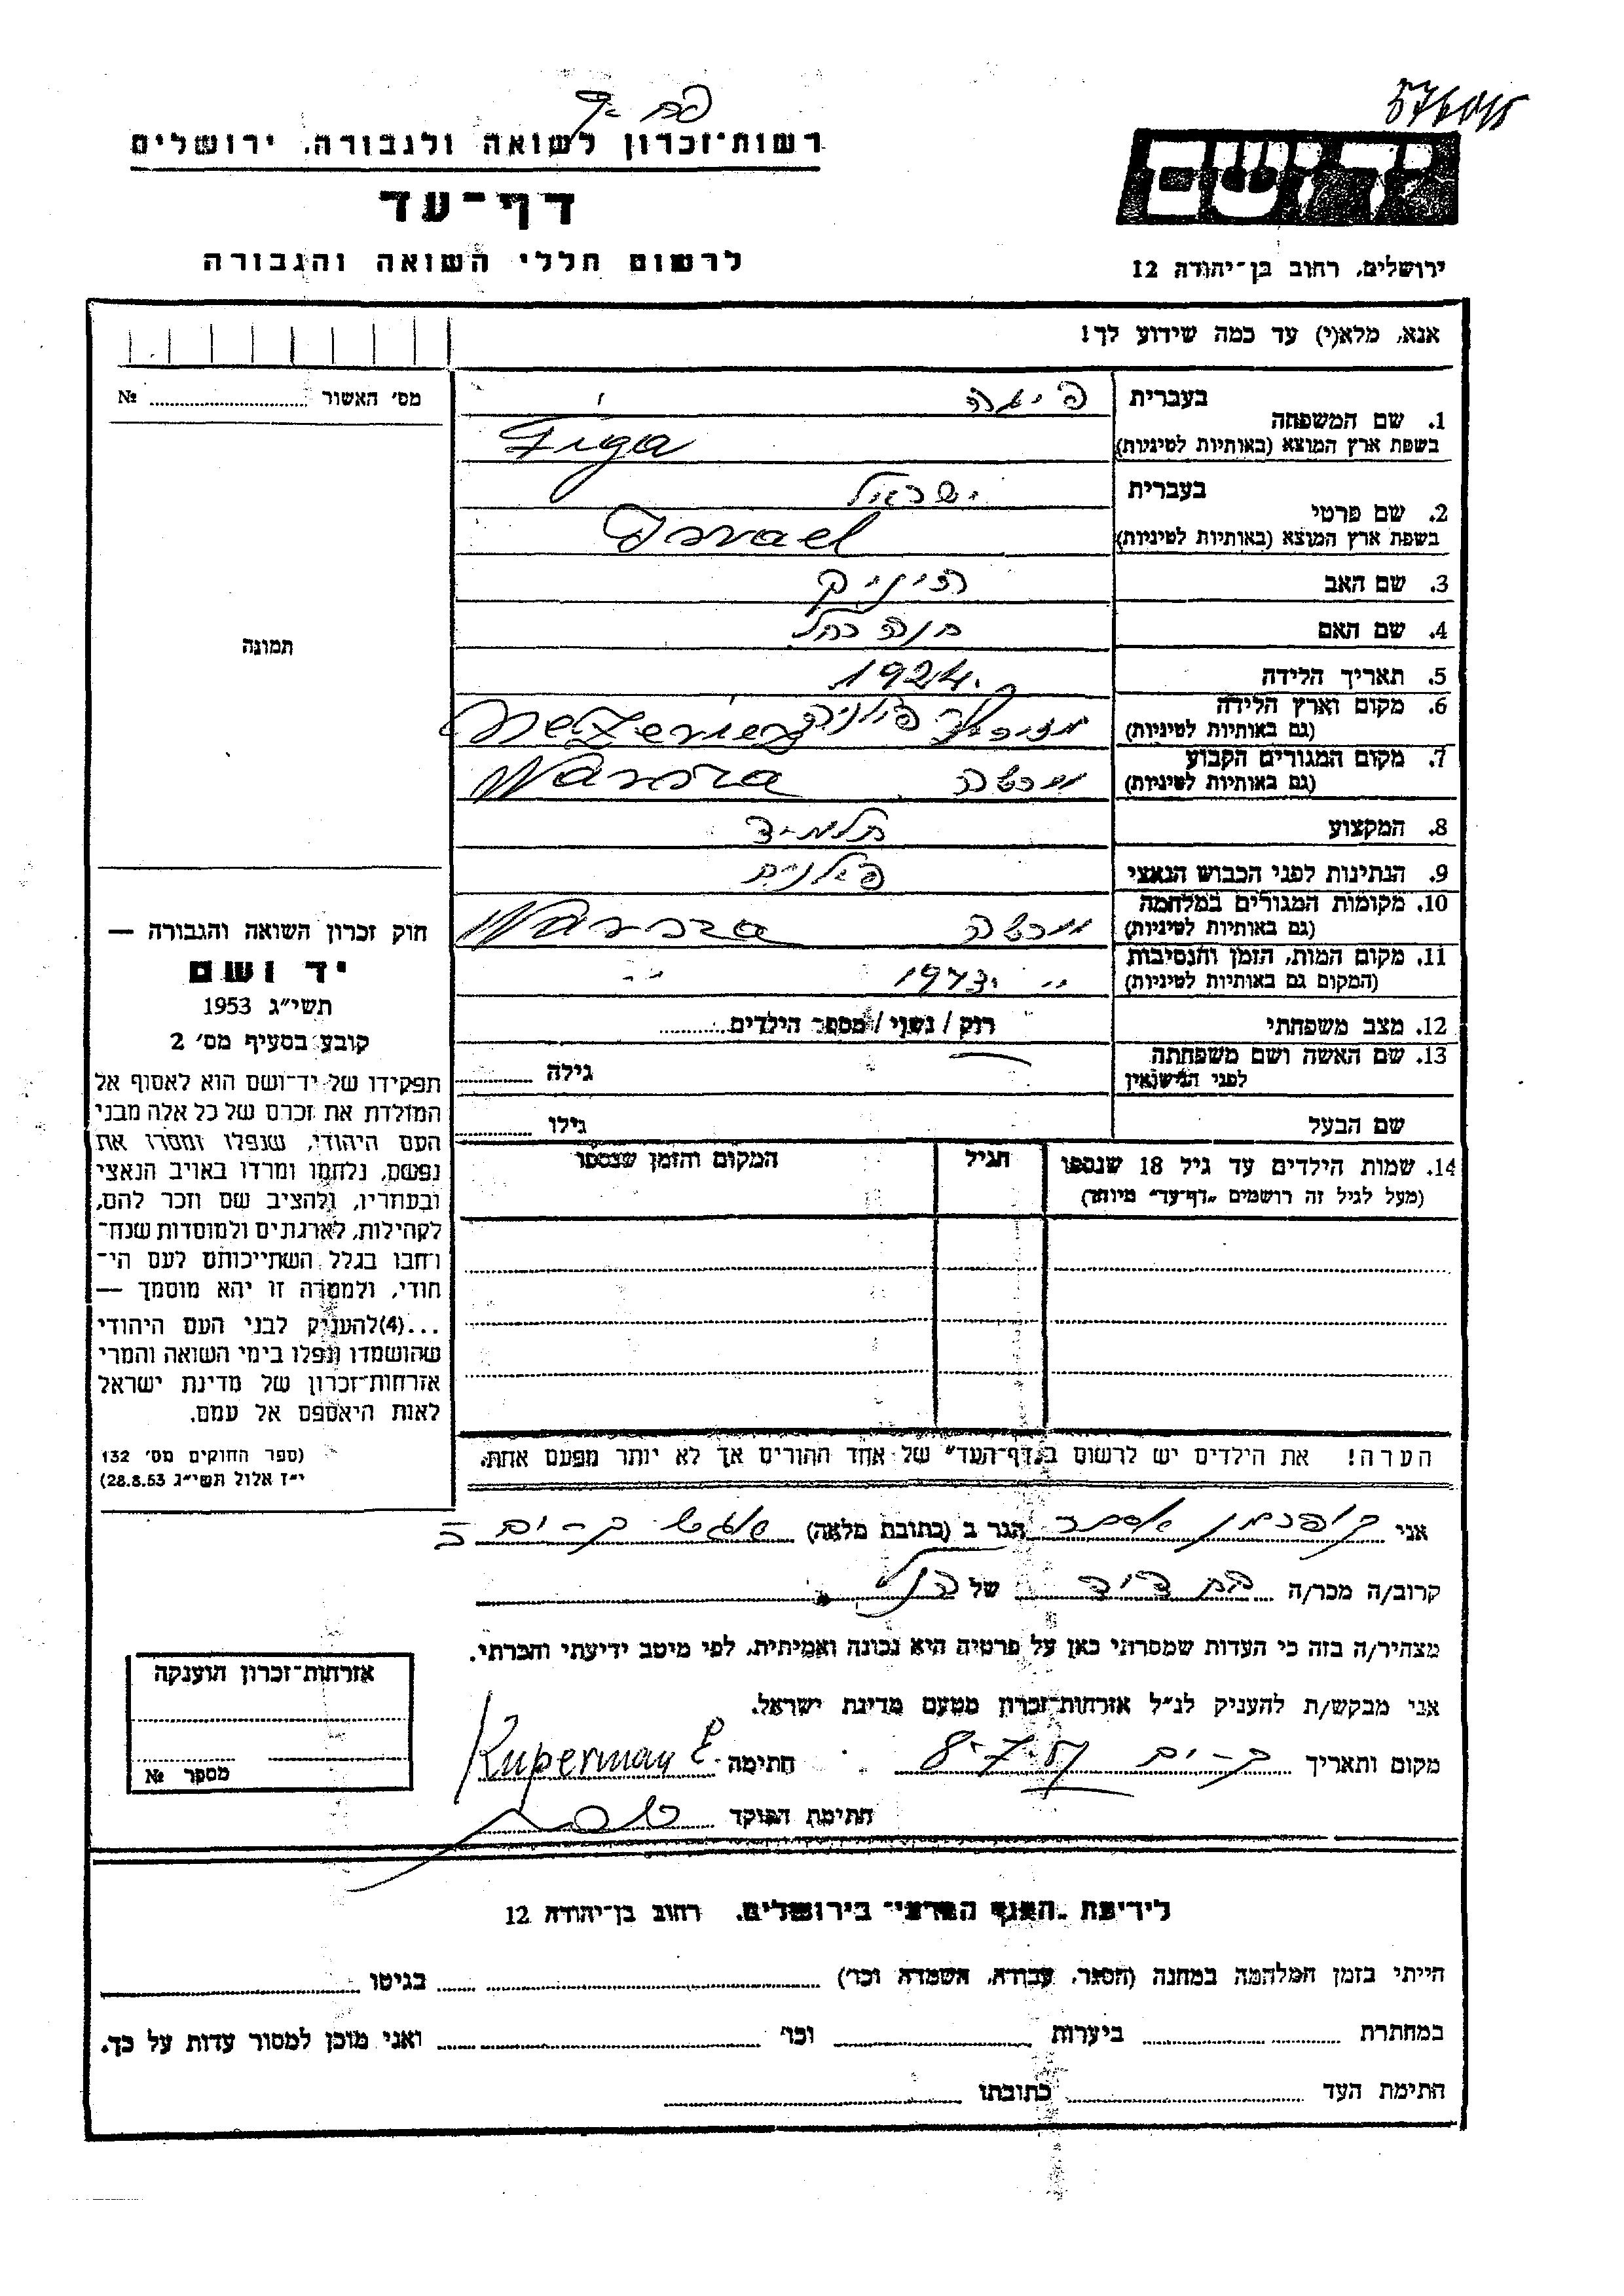 יד ושם
רשות־זכרון לשואה ולגבורה, ירושלים
דף־עד
לרשום חללי השואה והגבורה
ירושלים, רחוב בן־יהודה 12
אנא, מלא(י) עד כמה שידוע לך!
מס׳ האשור № 
בעברית
1. שם המשפחה
בשפת ארץ המוצא (באותיות לטיניות) Figa
בעברית ישראל
2. שם פרטי
בשפת ארץ המוצא (באותיות לטיניות) Israel
3. שם האב
4. שם האם חנה רחל
5. תאריך הלידה 1924.
6. מקום וארץ הלידה פולניה
(גם באותיות לטיניות)
7. מקום המגורים הקבוע ורשה Warsza
(גם באותיות לטיניות)
8. המקצוע תלמיד
9. הנתינות לפני הכבוש הנאצי פולנית
10. מקומות המגורים במלחמה ורשה Warsza
(גם באותיות לטיניות)
11. מקום המות, הזמן והנסיבות " 1943 "
(המקום גם באותיות לטיניות)
12. מצב משפחתי רוק / נשוי / מספר הילדים
13. שם האשה ושם משפחתה גילה
לפני הנישואין
שם הבעל גילו
14. שמות הילדים עד גיל 18 שנספו הגיל המקום והזמן שנספו
(מעל לגיל זה רושמים "דף־עד" מיוחד)
הערה! את הילדים יש לרשום ב"דף־העד" של אחד ההורים אך לא יותר מפעם אחת.
תמונה
חוק זכרון השואה והגבורה —
יד ושם
תשי״ג 1953
קובע בסעיף מס׳ 2
תפקידו של יד־ושם הוא לאסוף אל
המולדת את זכרם של כל אלה מבני
העם היהודי, שנפלו ומסרו את
נפשם, נלחמו ומרדו באויב הנאצי
ובעוזריו, ולהציב שם וזכר להם,
לקהילות, לארגונים ולמוסדות שנח־
רחבו בגלל השתייכותם לעם הי־
הודי, ולמטרה זו יהא מוסמך —
...(4)להעניק לבני העם היהודי
שהושמדו ונפלו בימי השואה והמרי
אזרחות־זכרון של מדינת ישראל
לאות היאספם אל עמם.
(ספר החוקים מס׳ 132
י״ז אלול תשי״ג 28.8.53)
אני קופרמן אסתר הגר ב (כתובת מלאה) ק-ים
קרוב/ה מכר/ה בת דוד של הנ״ל
מצהיר/ה בזה כי העדות שמסרתי כאן על פרטיה היא נכונה ואמיתית, לפי מיטב ידיעתי והכרתי.
אני מבקש/ת להעניק לנ״ל אזרחות־זכרון מטעם מדינת ישראל.
מקום ותאריך ק-ים 8-7-57 חתימה Kuperman E
חתימת הפוקד
אזרחות־זכרון הוענקה
מספר №
לידיעת "האגף המדעי" בירושלים, רחוב בן־יהודה 12
הייתי בזמן המלחמה במחנה (הסגר, עבודה, השמדה וכו׳) בגיטו
במחתרת ביערות וכו׳ ואני מוכן למסור עדות על כך.
חתימת העד כתובתו